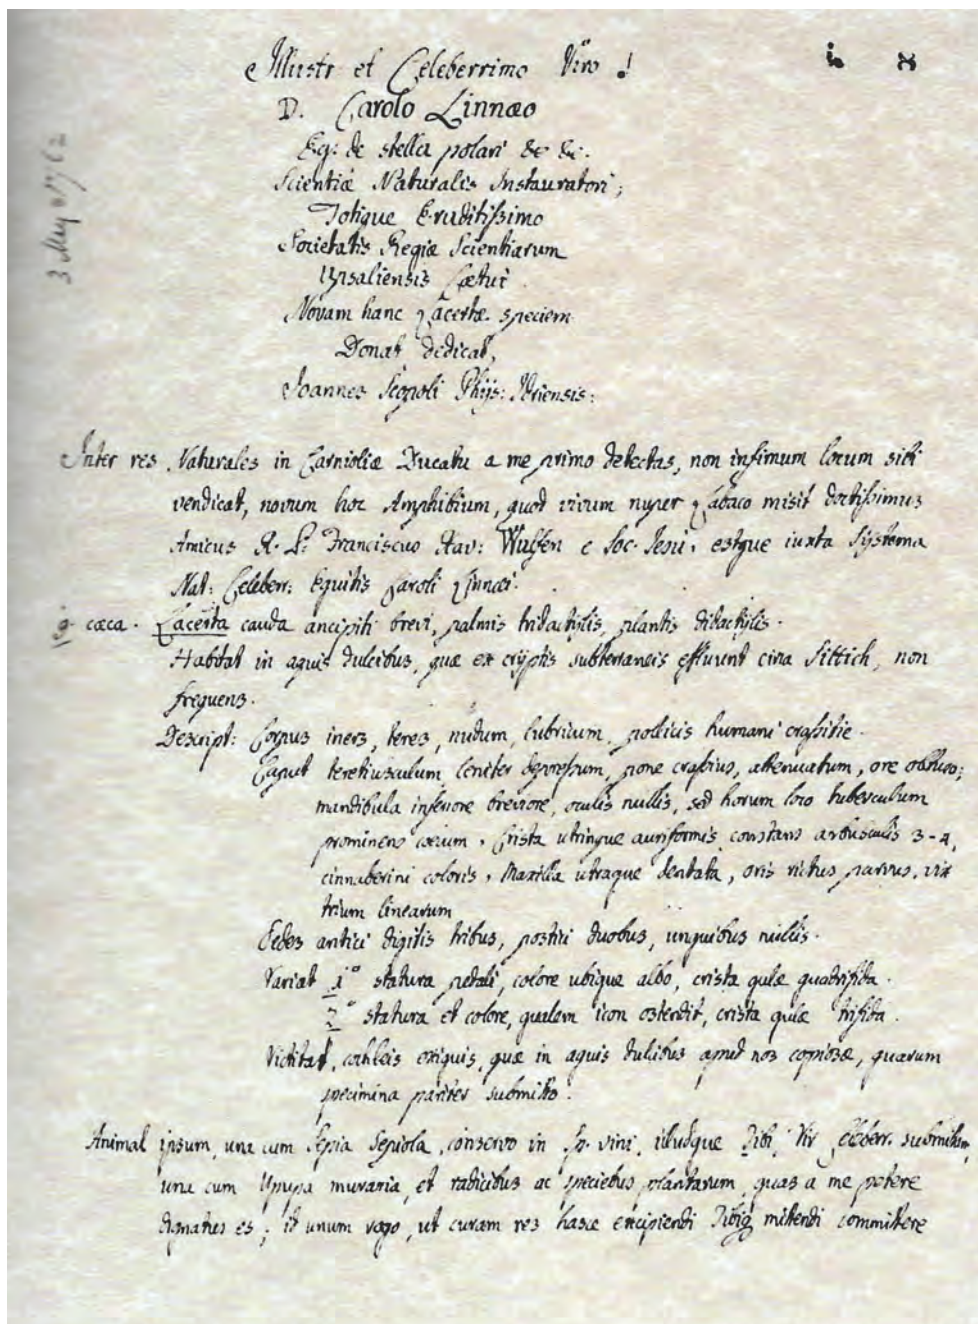 Illustr et Celeberrimo Viro !
D. Carolo Linnæo
Eq: de stella polari &c &c.
Scientiæ Naturalis Instauratori;
Totique Eruditißimo
Societatis Regiæ Scientiarum
Upsaliensis Cætui
Novam hanc Lacertæ speciem
Donat dedicat,
Joannes Scopoli Phys: Idriensis:
3 May 1762
Inter res Naturales in Carnioliæ Ducatu a me primo detectas, non infimum locum sibi
vendicat, novum hoc Amphibium, quod vivum nuper Labaco misit doctißimus
Amicus R. P. Franciscus Xav: Wulfen e Soc. Jesu, estque iuxta Systema
Nat: Celeberr: Equitis Caroli Linnæi.
cæca. Lacerta cauda ancipiti brevi, palmis tridactylis, plantis didactylis.
Habitat in aquis dulcibus, quæ ex cryptis subterraneis effluunt circa Sittich, non
frequens.
Descript: Corpus iners, teres, nudum, lubricum, pollicis humani craßitie.
Caput teretiusculum leniter depreßum, pone craßius, attenuatum, ore obtuso;
mandibula inferiore breviore, oculis nullis, sed horum loco tuberculum
prominens cæcum, Crista utrinque auriformis, constans arbusculis 3-4,
cinnaberini coloris, Maxilla utraque dentata, oris rictus parvus, vix
trium linearum
Pedes antici digitis tribus, postici duobus, unguibus nullis.
Variat 1° statura pedali, colore ubique albo, crista gulæ quadrifida.
2° statura et colore, qualem icon ostendit, crista gulæ trifida.
Victitat, cochleis exiguis, quæ in aquis dulcibus apud nos copiosæ, quarum
specimina pariter submitto.
Animal ipsum, una cum Sepia Sepiola, conservo in Sp. vini, illudque Tibi, Vir Celeberr. submittam,
una cum Upupa muraria, et radicibus ac speciebus plantarum, quas a me petere
dignatus es; id unum rogo, ut curam res hasce excipiendi Tibiq mittendi committere